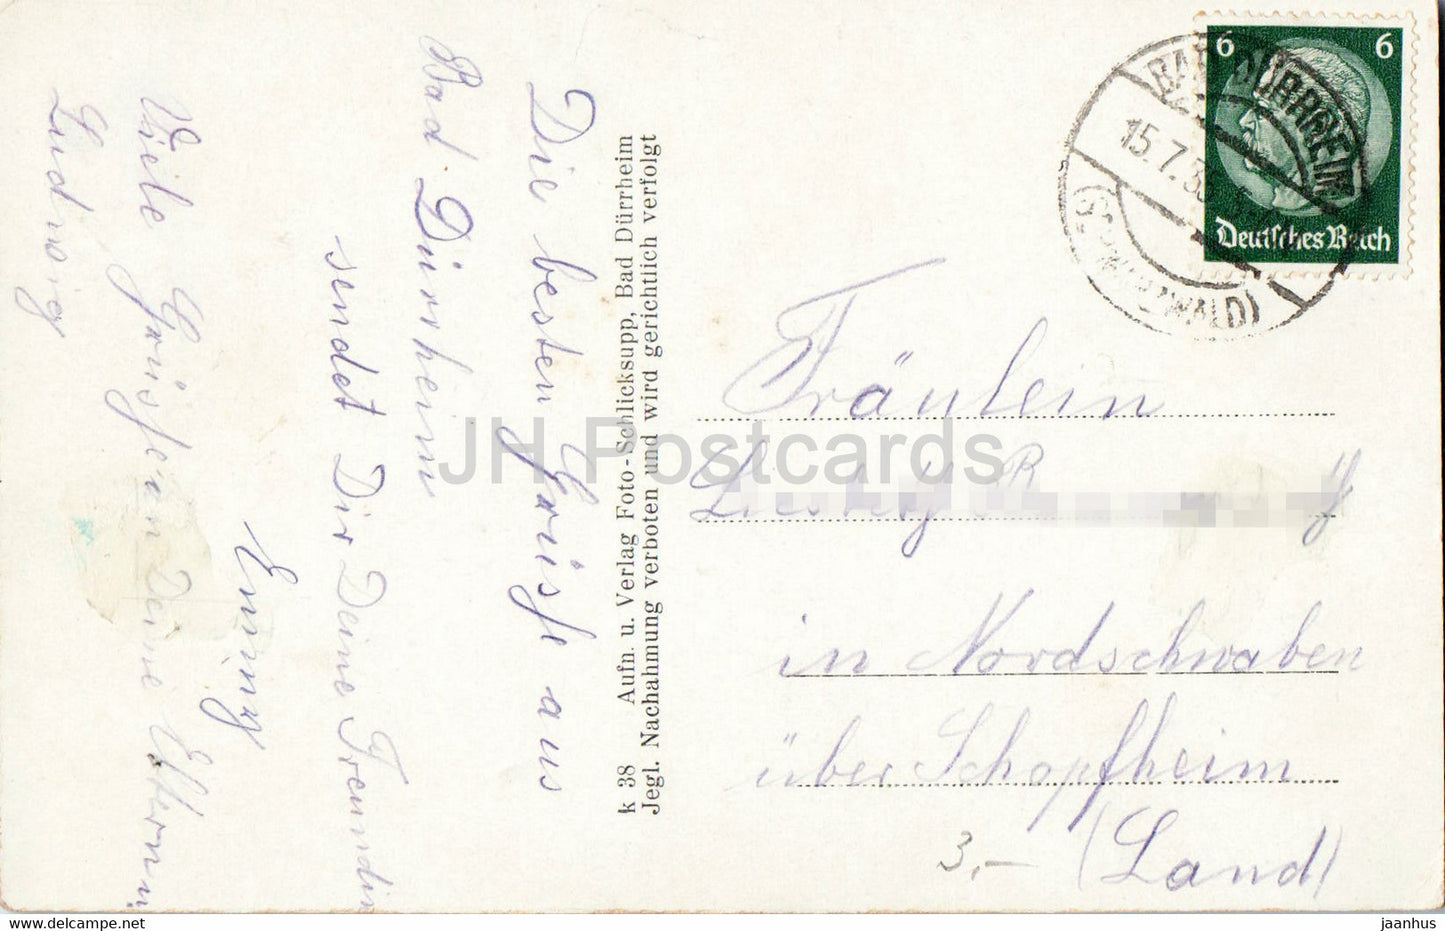 Die besten Grüsse aus
Bad Dürrheim
sendet Dir Deine Freundin
Emmy
Viele Grüsse an Deine Eltern u.
Ludwig
k 38 Aufn. u. Verlag Foto-Schlicksupp, Bad Dürrheim
Jegl. Nachahmung verboten und wird gerichtlich verfolgt
6 6
Deutsches Reich
BAD DÜRRHEIM
15.7.3
(SCHWARZWALD)
Fräulein
in Nordschwaben
über Schopfheim
(Land)
3,-
JH Postcards
www.delcampe.net
jaanhus